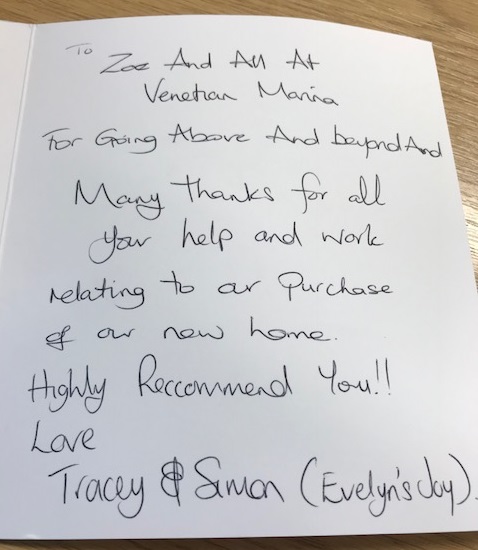 To Zoe And All At
Venetian Marina
For Going Above And beyond And
Many thanks for all
your help and work
relating to our Purchase
of our new home.
Highly Reccommend You!!
Love
Tracey & Simon (Evelyn's Joy).